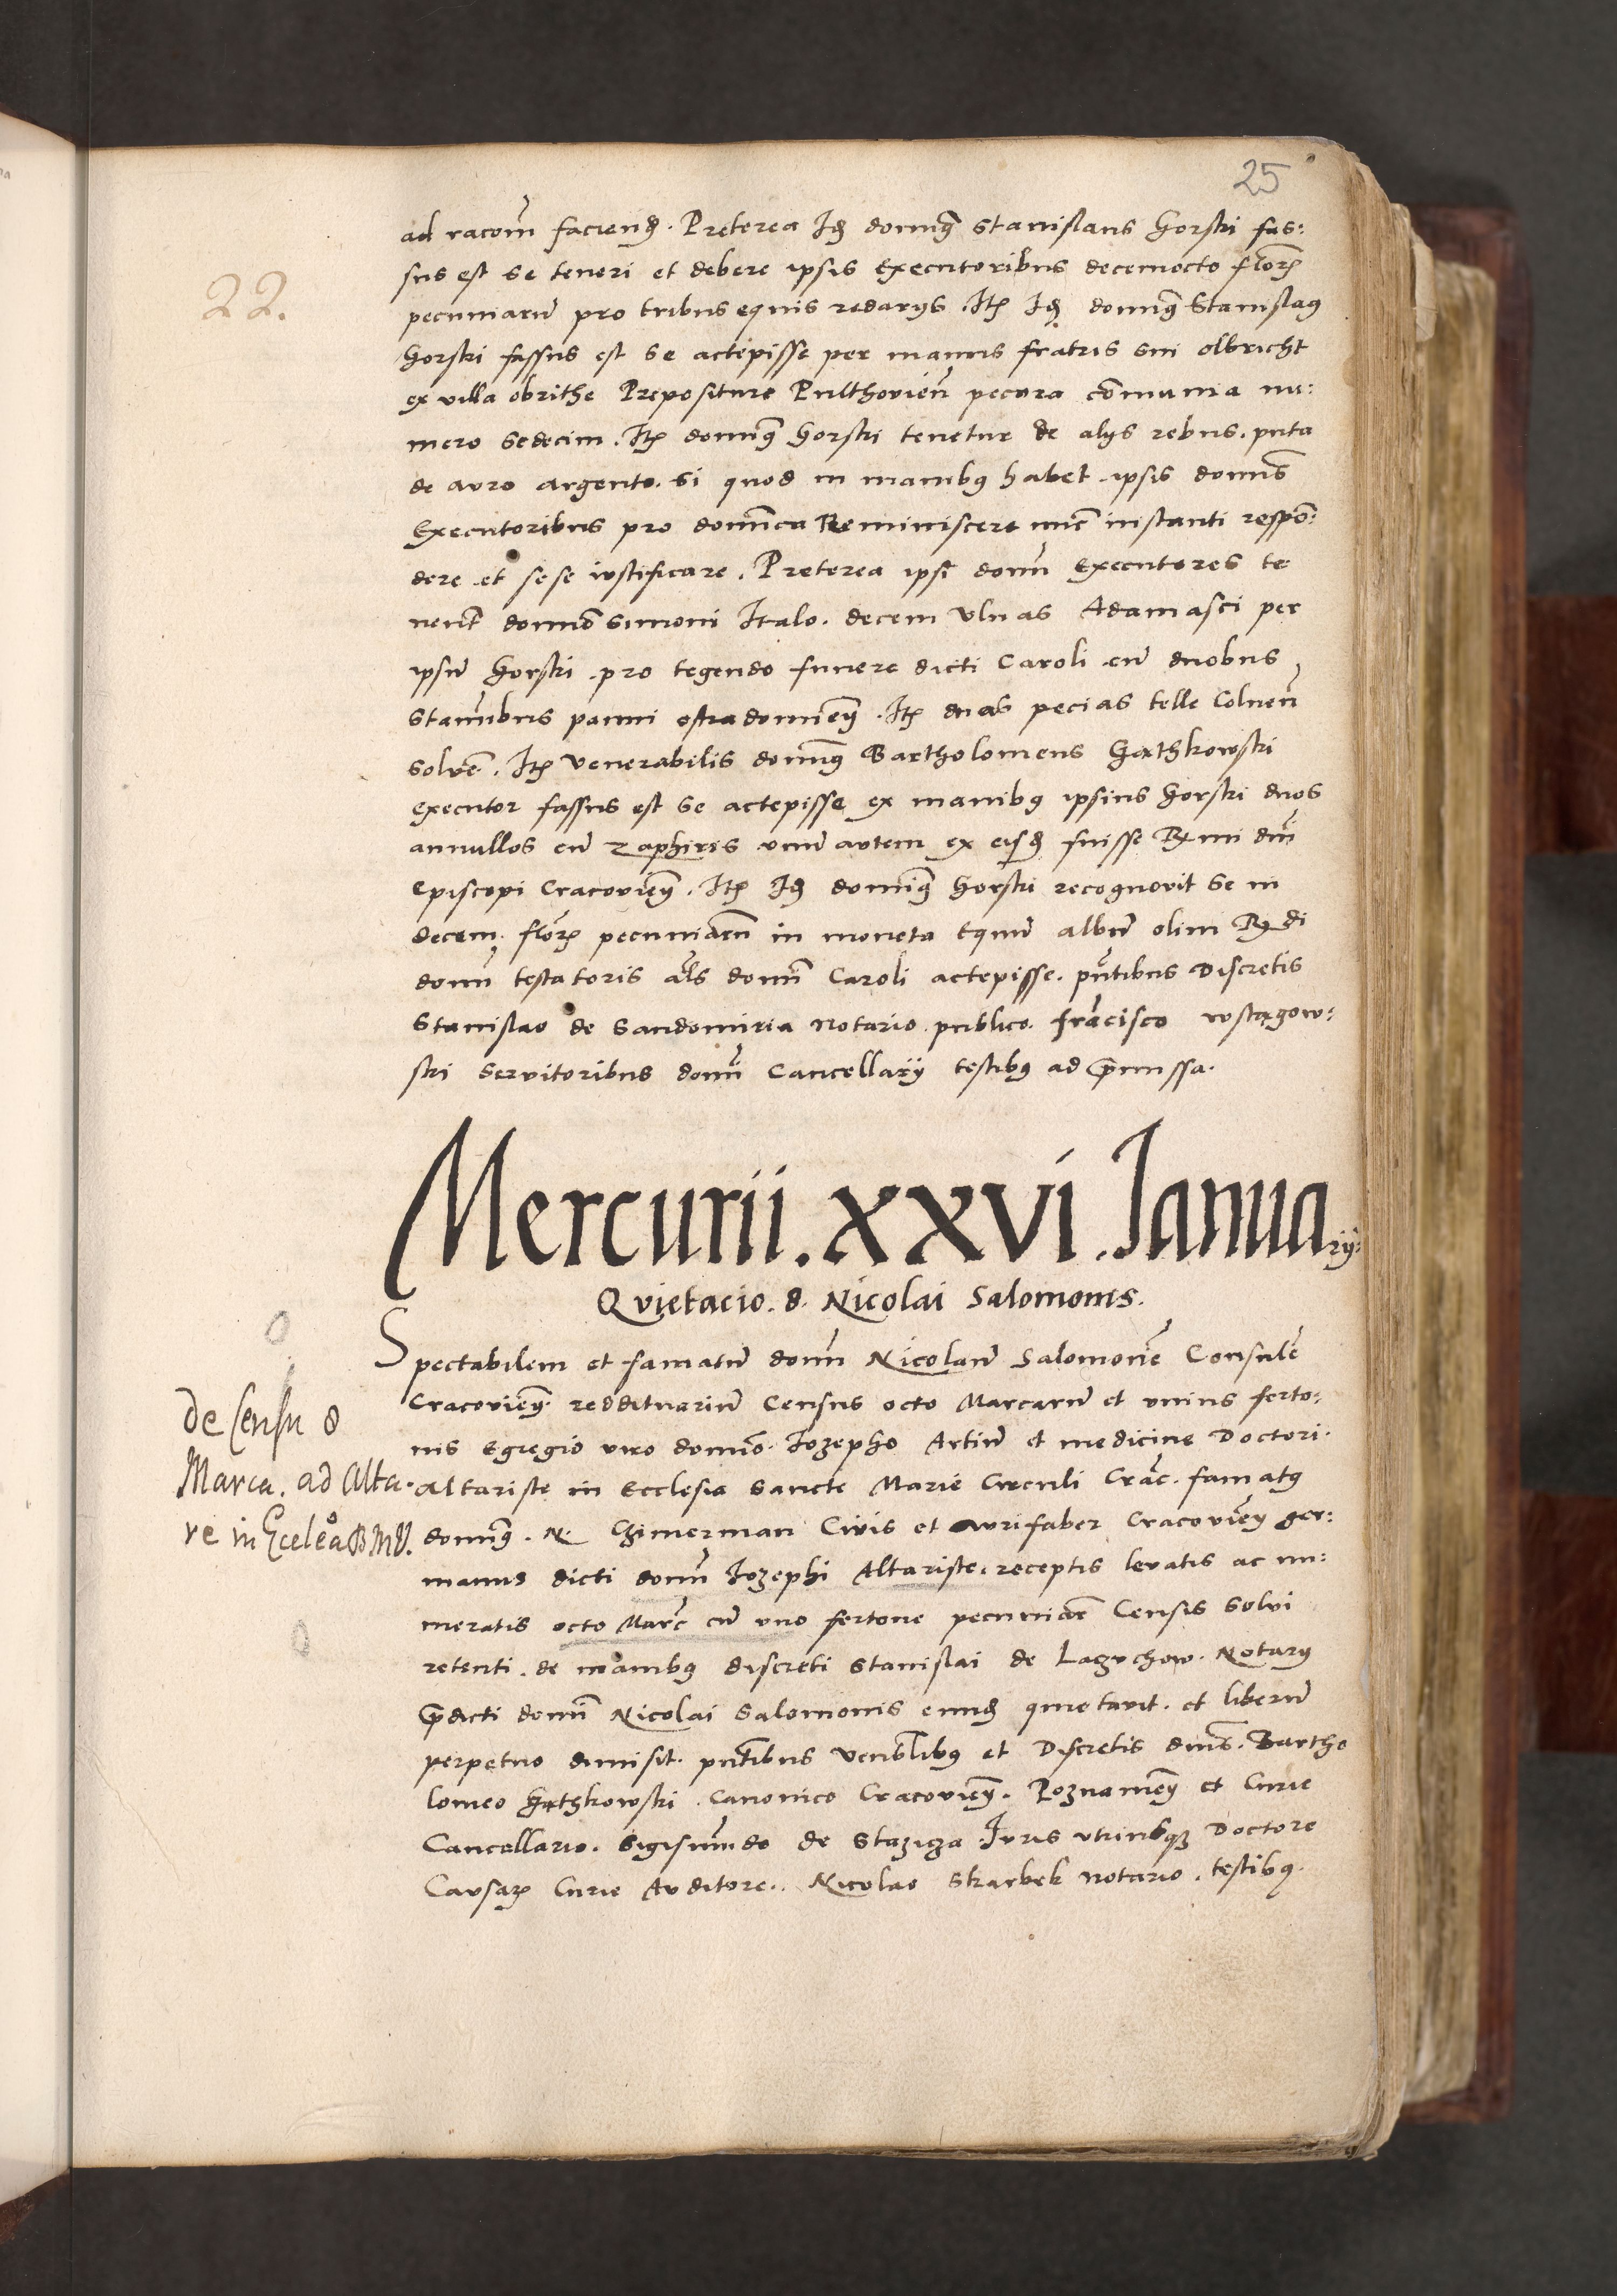 25
22.
ad racom̃ faciend. Preterea Id domin9 Stanislaus Horski fas:
sus est se teneri et debere ipsis Executoribus decemocto floren
pecuniarũ pro tribus equis redarijs. Itẽ Id domin9 Stanisla9
Horski fassus est se accepisse per manus fratris sui olbricht
ex villa obrithe Prepositure Pulthovieñ pecora cõmunia nu:
mero sedecim. Itẽ domin9 Horski tenetur de alijs rebus. puta
de auro argento. si quod in manib9 habet ipsis domĩs
Executoribus pro domĩca Reminiscere nũc instanti respõ:
dere et sese iustificare. Preterea ipsi domĩ Executores te
nent̃ domĩo Simoni Italo. decem ulnas Adamasci per
ipsũ Horski pro tegendo funere dicti Caroli cũ duobus
staminibus panni Itẽ duas pecias telle Colneñ
solvẽ. Itẽ Venerabilis domin9 Bartholomeus Gathkowski
executor fassus est se accepisse ex manib9 ipsius Horski duos
annullos cũ zaphiris unũ autem ex eisd fuisse Rmi dñi
Episcopi Cracovien. Itẽ Id domin9 Horski recognovit se in
decem floren pecuniarũ in moneta Equũ albũ olim Rdi
domĩ testatoris als domĩ Caroli accepisse. pñtibus Discretis
Stanislao de Sandomiria Notario publico. frãcisco wstągow:
ski servitoribus domĩ Cancellarij testib9 ad p̃missa.
Mercurii. xxvi. Ianuarij:
Quietacio. d. Nicolai Salomonis.
Spectabilem et famatũ domĩ Nicolaũ Salomonẽ Consulẽ
Cracovien. reddituariũ Census octo Marcarũ et unius ferto:
nis Egregio viro domĩo. Iozepho Artiũ et medicine Doctori.
Altariste in Ecclesia Sancte Marie Circuli Crãc. famat9
domin9. N. Czimerman Civis et Aurifaber Cracovien ger:
manus dicti domĩ Iozephi Altariste. receptis levatis ac nu:
meratis octo Marc̃ cũ uno fertone pecuniar̃ Censis solvi
retenti. de manib9 discreti Stanislai de Lazuchow. Notarij
p̃dicti domĩ Nicolai Salomonis eund quietavit. et liberũ
perpetuo dimisit. pñtibus venblib9 et Discretis dñis. Bartho
lomeo Gathkowski. Canonico Cracovien. Poznanien et Curie
Cancellario. Sigismũdo de Staziza Iuris utriusq3 Doctore
Causar̃ Curie Auditore.. Nicolao Skarbek notario. testib9.
de Censu 8
Marca. ad Alta.
re in Eccleã B M V.